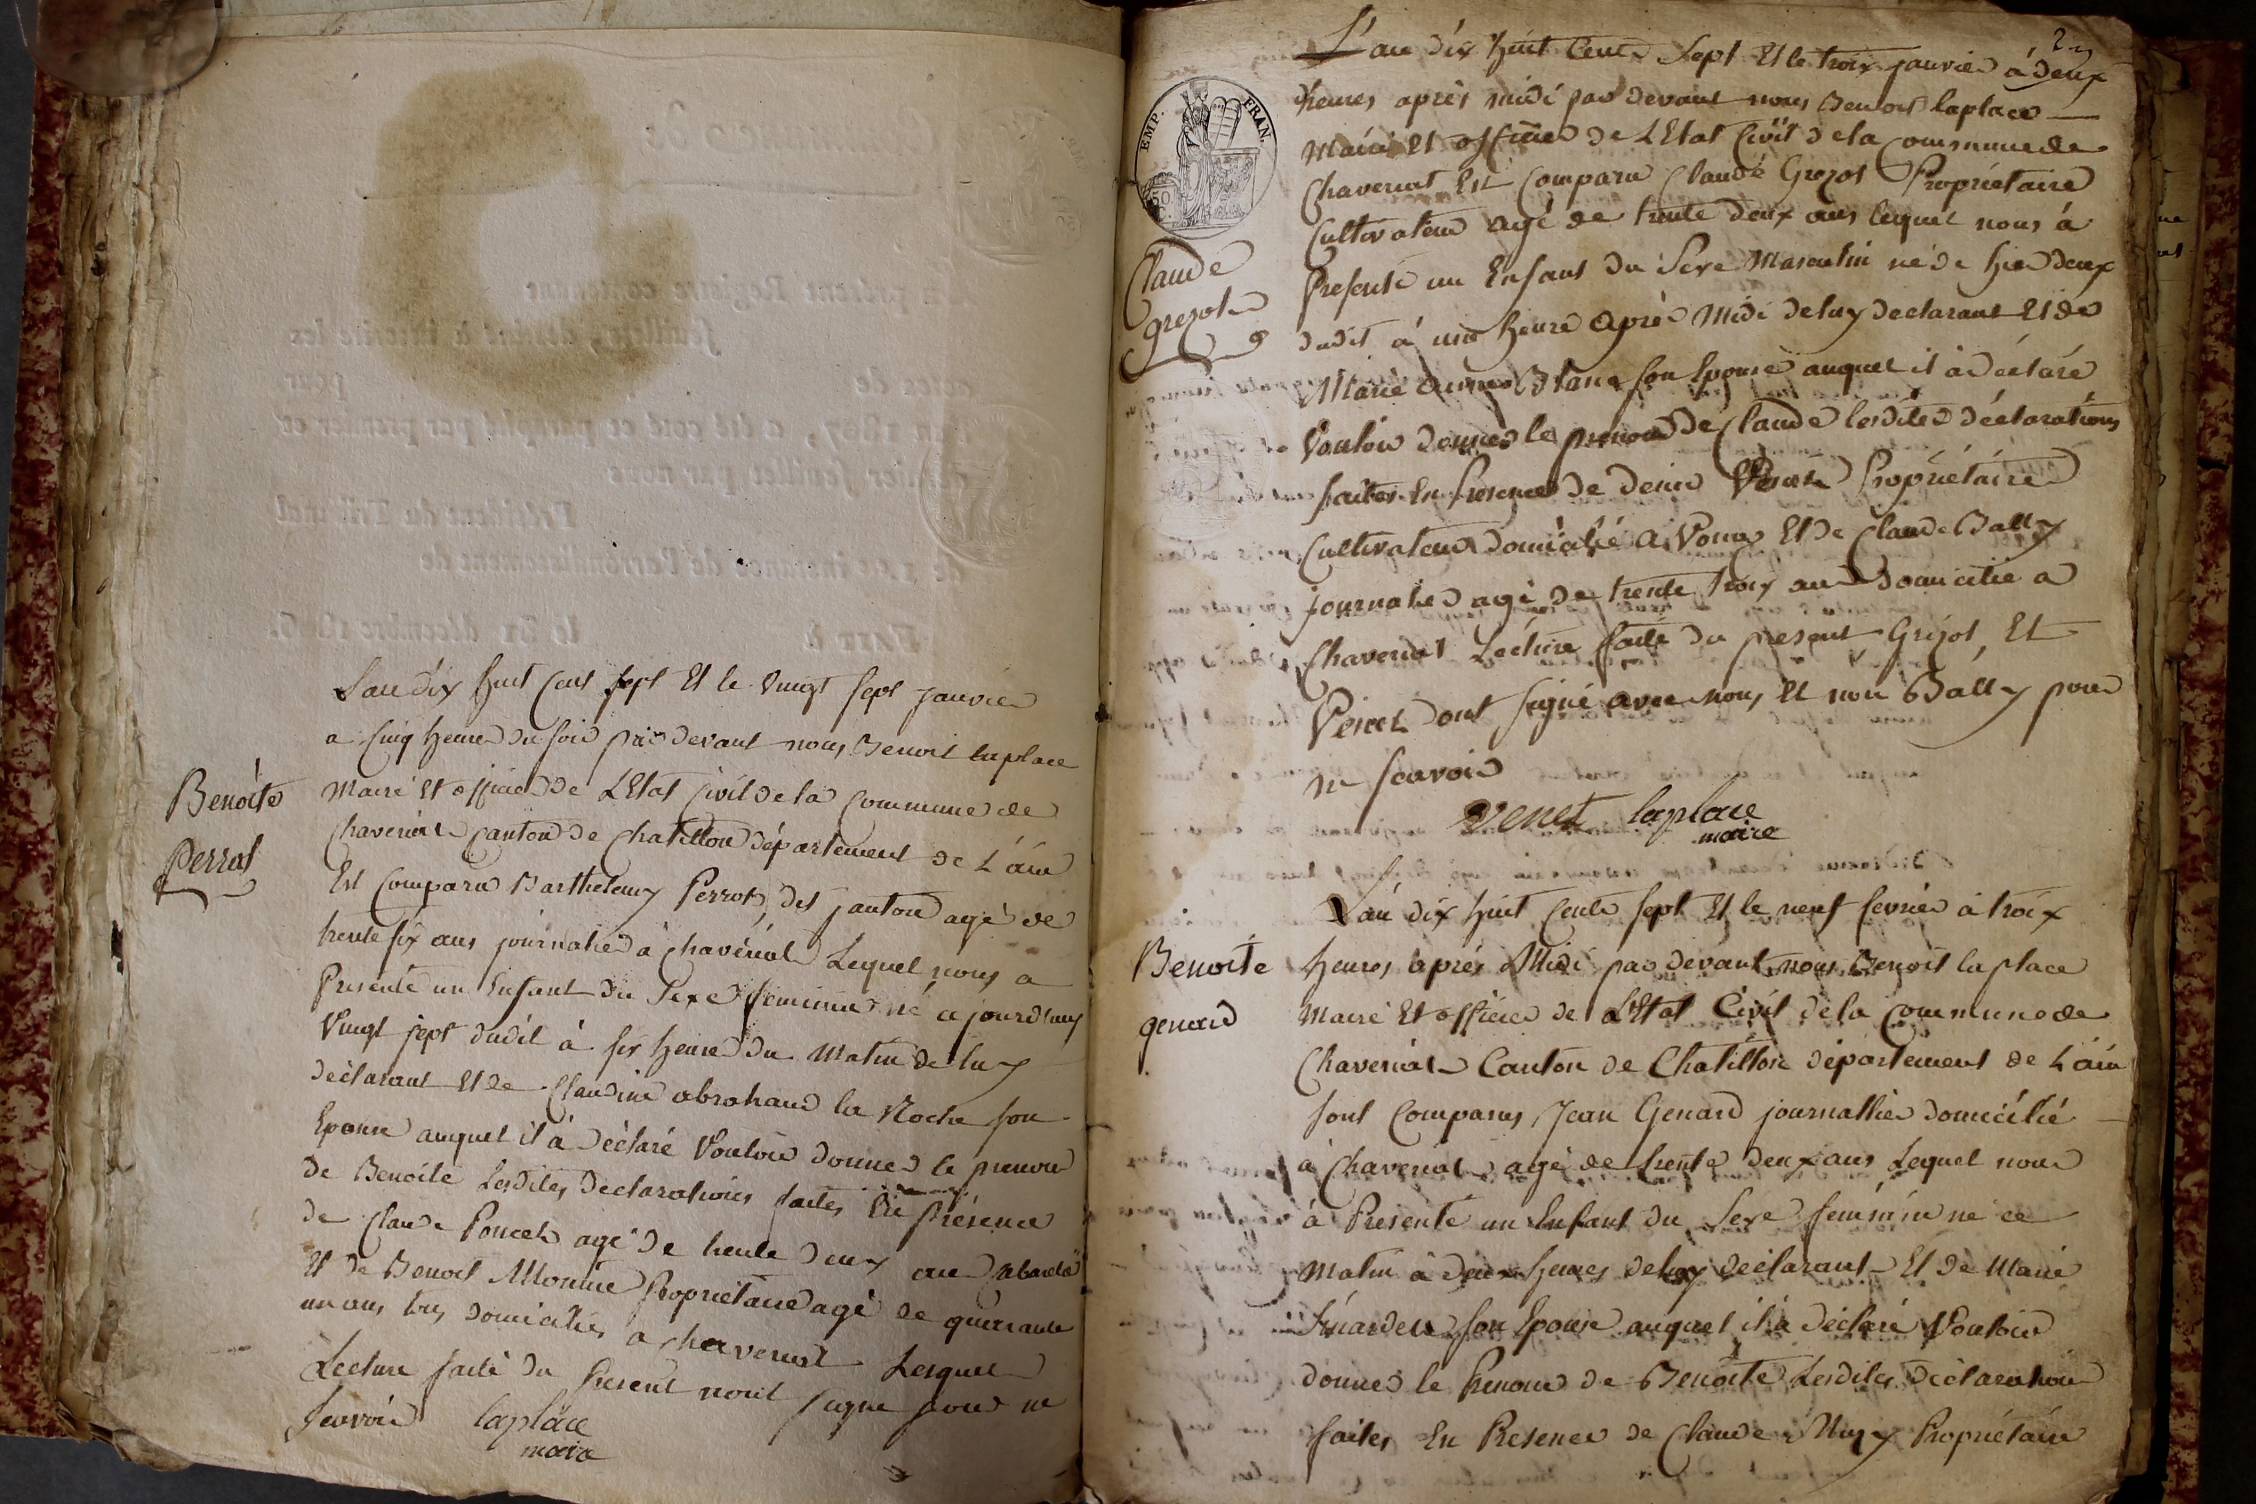 Benoîte
Perrot
L'an dix huit cent sept Et le vingt sept janvier
a cinq heure du soir par devant nous Benoit laplace
Maire Et officier de L'Etat Civil de la Commune de
Chaveriat Canton de Chatillon département de L'ain
Est Comparu Barthelemy Perrot, dit janton agé de
trente six ans journalier à chavériat Lequel nous a
Presenté un Enfant du Sexe feminin né ajourdhuy
Vingt sept dudit à six heure du Matin de luy
déclarant Et de Claudine abraham la Roche son
Epouse auquel il à déclaré Vouloir donner le prenom
de Benoîte Lesdites Declarations faites En présence
de Claude Poncet agé de trente deux ans
Et de Benoit Propriétaire agé de quarante
un ans tous domiciliés a chaveriat Lesquel
Lecture faite du present nont signe pour ne
scavoir laplace
maire
2
EMP. FRAN.
50 C.
Claude
grezot
L'an dix huit Cent Sept Et le trois janvier à deux
heures après midi par devant nous Benoit laplace
Maire Et officier de L'Etat Civil de la Commune de
Chaveriat Est Comparu Claude Grezot Propriétaire
Cultivateur agé de trente deux ans lequel nous à
Presenté un Enfant du Sexe Masculin né de hier deux
dudit à une heure après Midi de luy declarant Et de
Marie Blanc son Epouse auquel il à déclaré
Vouloir donner le prenom de Claude lesdites déclarations
faites En presence de denis Venet Propriétaire
Cultivateur domicilié a Vonnas Et de Claude Bally
journalier agé de trente trois ans Domicilié a
Chaveriat Lecture faite du present Grizot, Et
Venet ont signé avec nous Et non Bally pour
ne scavoir
venet laplace
maire
Benoîte
genard
L'an dix huit Cent sept Et le neuf fevrier à troix
heures après Midi par devant nous Benoit la place
Maire Et officier de L'Etat Civil de la Commune de
Chaveriat Canton de Chatillon département de L'ain
sont Comparus Jean Genard journallier domicilié
à Chaveriat agé de trente deux ans Lequel nous
à Presenté un Enfant du Sexe feminin né ce
Matin à deux heures de luy déclarant Et de Marie
son Epouse auquel il à déclaré Vouloir
donner le Prenom de Benoîte Lesdites déclaration
faites En Présence de Claude Propriétaire